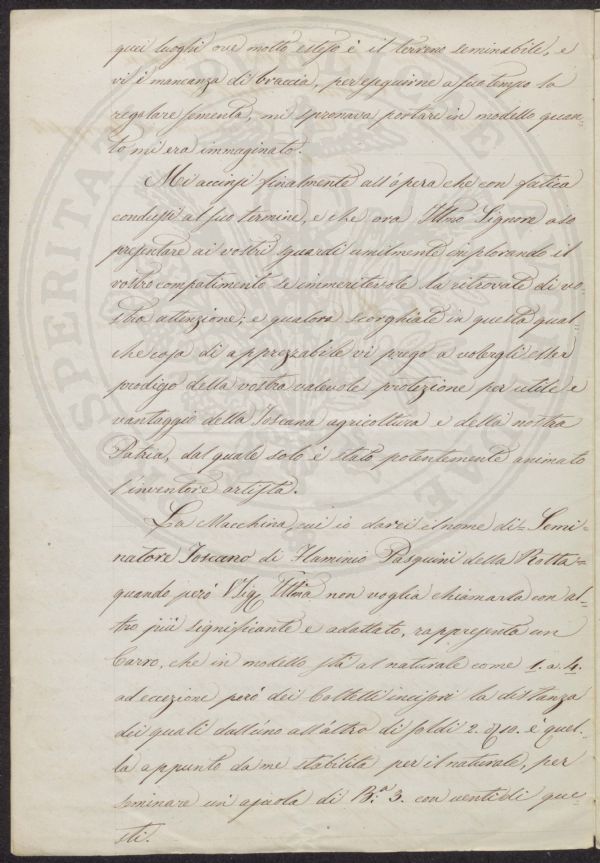 quei luoghi ove molto esteso è il terreno seminabile, e
vi è mancanza di braccia, per eseguirne a suo tempo la
regolare sementa, mi spronava portare in modello quan-
to mi era immaginato.
Mi accinsi finalmente all'opera che con fatica
condussi al suo termine, e che ora Ill̃mo Signore oso
presentare ai vostri sguardi umilmente implorando il
vostro compatimento se immeritevole la ritrovate di vo-
stra attenzione; e qualora scorghiate in questa qual
che cosa di apprezzabile vi prego a volergli esser
prodigo della vostra valevole protezione per utile e
vantaggio della Toscana agricoltura e della nostra
Patria, dal quale solo è stato potentemente animato
l'inventore artista.
La Macchina cui io darei il nome di = Semi-
natore Toscano di Flaminio Pasquini della Rotta =
quando però V. Sig. Ill̃ma non voglia chiamarla con al-
tro più significante e adattato, rappresenta un
Carro, che in modello stà al naturale come 1. a 4.
ad eccezione però dei Coltelli incisori la distanza
dei quali dall'uno all'altro di soldi 2. 10. è quel-
la appunto da me stabilita per il naturale, per
seminare un ajuola di B.ª 3. con venti di que-
sti.
PROSPERITATI